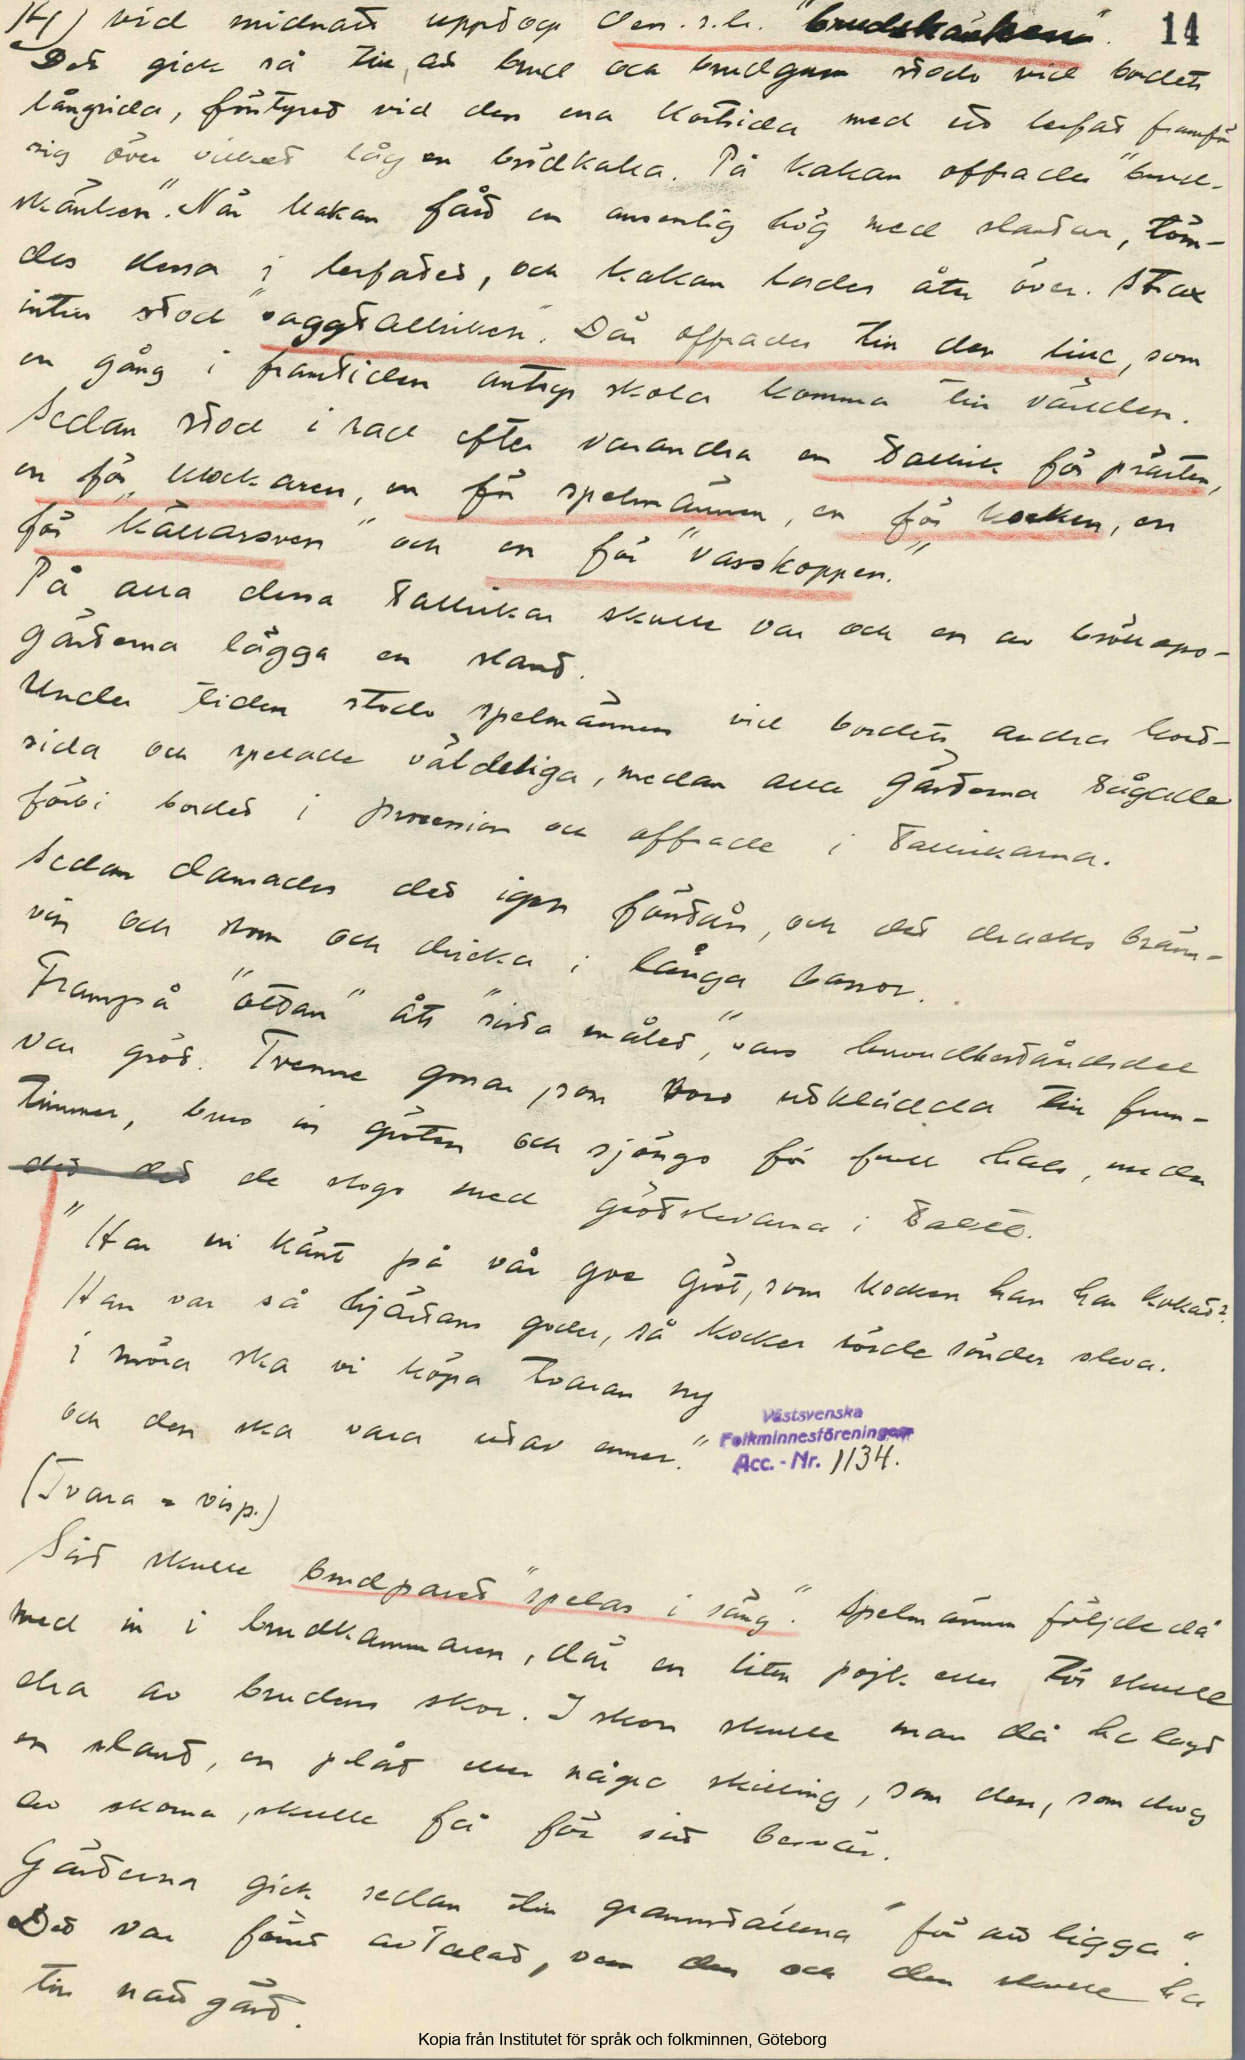 14) vid midnatt upptogs den s.k. "brudskänken". 14
Det gick så till, att brud och brudgum stodo vid bordets
långsida, förstyret vid den ena kortsidan med ett lerfat framför
sig över vilket låg en brödkaka. På kakan offrades "brud-
skänken". När kakan fått en ansenlig hög med slantar, töm-
des dessa i lerfatet, och kakan lades åter över. Strax
intill stod "vaggtallriken". Där offrades till den lille, som
en gång i framtiden antogs skola komma till världen.
Sedan stod i rad efter varandra en tallrik för prästen,
en för klockaren, en för spelmännen, en för kocken, en
för "källarsven" och en för "vasskoppen."
På alla dessa tallrikar skulle var och en av bröllops-
gästerna lägga en slant.
Under tiden stodo spelmännen vid bordets andra kort-
sida och spelade väldeliga, medan alla gästerna tågade
förbi bordet i procession och offrade i tallrikarna.
Sedan dansades det igen förstås, och det dracks bränn-
vin och rom och dricka i långa banor.
Frampå "ottan" åts "sista målet", vars huvudbeståndsdel
var gröt. Trenne gossar, som voro utklädda till frun-
timmer, buro in gröten och sjöngo för full hals, medan
det det de slogo med grötslevarna i taket.
"Har ni känt på vår goe gröt, som kocken han har kokat?
Han var så hjärtans goder, så kocken rörde sönder sleva.
i mora ska vi köpa tvaran ny
och den ska vara utav ener."
Västsvenska
Folkminnesföreningen
Acc. - Nr. 1134.
(Tvara = visp.)
Sist skulle brudparet "spelas i säng". Spelmännen följde då
med in i brudkammaren, där en liten pojk eller tös skulle
dra av brudens skor. I skon skulle man då ha lagt
en slant, en plåt eller några skilling, som den, som drog
av skorna, skulle få för sitt besvär.
Gästerna gick sedan till grannställena "för att ligga".
Det var förut avtalat, vem den och den skulle ha
till nattgäst.
Kopia från Institutet för språk och folkminnen, Göteborg